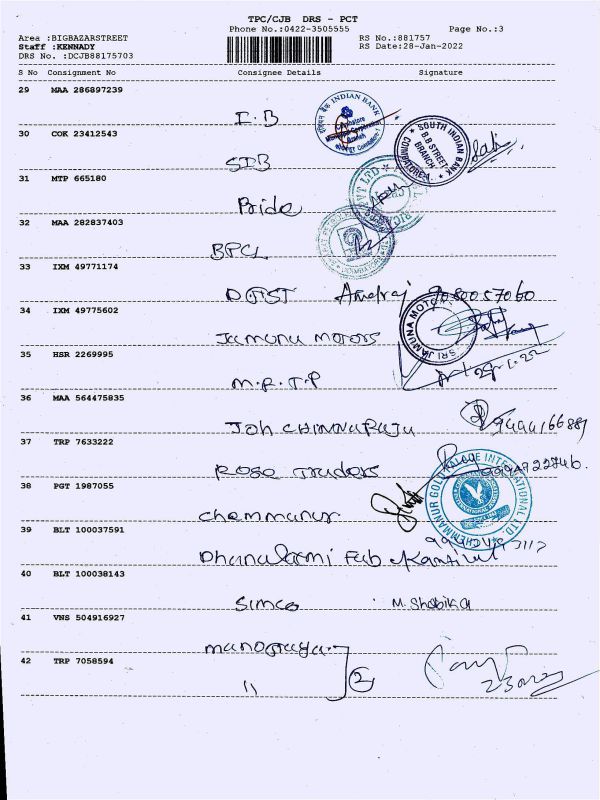 TPC/CJB DRS - PCT
Phone No.:0422-3505555 Page No.:3
Area :BIGBAZARSTREET RS No.:881757
Staff :KENNADY RS Date:28-Jan-2022
DRS No. :DCJB88175703
S No Consignment No Consignee Details Signature
29 MAA 286897239
I.B INDIAN BANK
30 COK 23412543
SIB SOUTH INDIAN BANK B.B STREET BRANCH COIMBATORE-1
31 MTP 665180
Pride
32 MAA 282837403
BPCL
33 IXM 49771174
34 IXM 49775602
Jamuna Motors SRI JAMUNA MOTORS
35 HSR 2269995
M.R.T.P
36 MAA 564475835
Joh CHINNARAJU
37 TRP 7633222
Rose Traders
38 PGT 1987055
Chemmanur CHEMMANUR GOLD PALACE INTERNATIONAL LTD.
39 BLT 100037591
Dhanalaxmi Fab
40 BLT 100038143
Simco M. Shobika
41 VNS 504916927
42 TRP 7058594
11 2